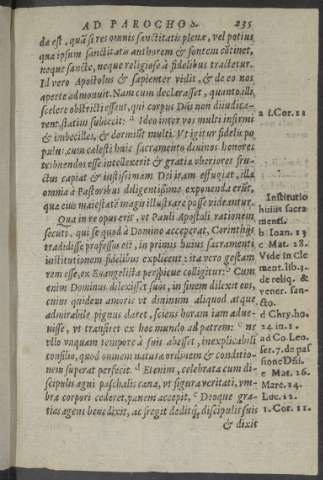 AD PAROCHOS. 235
da est, quā si res omnis sanctitatis plenæ, vel potius
quæ ipsum sanctitatis authorem & fontem cōtinet,
neque sancte, neque religiose à fidelibus tractetur.
Id vero Apostolus & sapienter vidit, & de eo nos
aperte admonuit. Nam cum declarasset, quanto illi
scelere obstricti essent, qui corpus Dñi non diiudica-
rent, statim subiecit: a Ideo inter vos multi infirmi
& imbecilles, & dormiũt multi. Vt igitur fidelis po
pulus, cum cælesti huic sacramento diuinos honores
tribuendos esse intellexerit & gratiæ vberiores fru-
ctus capiat & iustissimam Dei iram effugiat, illa
omnia à Pastoribus diligentissime exponenda erũt,
quæ eius maiestatē magis illustrare posse videantur.
Qua in re opus erit, vt Pauli Apostoli rationem
secuti, qui se quod à Domino acceperat, Corinthijs
tradidisse professus est, in primis huius sacramenti
institutionem fidelibus explicent: ita vero gestam
rem esse, ex Euangelista perspicue colligitur: b Cum
enim Dominus dilexisset suos, in finem dilexit eos,
cuius quidem amoris vt diuinum aliquod atque
admirabile pignus daret, sciens horam iam adue-
nisse, vt transiret ex hoc mundo ad patrem: c ne
vllo vnquam tempore à suis abesset, inexplicabili
consilio, quod omnem naturæ ordinem & conditio-
nem superat perfecit. d Etenim, celebrata cum di-
scipulis agni paschalis cœna, vt figura veritati, vm-
bra corpori cederet, panem accepit, e Deoque gra-
tias agens benedixit, ac fregit deditq́; discipulis suis
& dixit
a 1. Cor. 11
Institutio
huius sacra
menti.
b Ioann. 13
c Mat. 28.
Vide in Cle
ment. lib. 3.
de reliq. &
vener. san-
cto.
d Chry. ho.
24. in 1.
ad Co. Leo.
ser. 7. de pas
sione Dñi.
e Mat. 26.
Marc. 14.
Luc. 22.
1. Cor. 11.